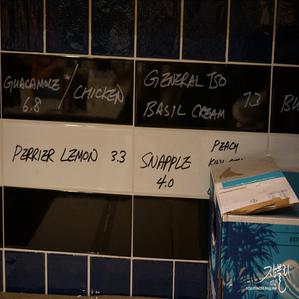 GUACAMOLE / CHICKEN
6.8
GENERAL TSO
BASIL CREAM 13
PERRIER LEMON 3.3
SNAPPLE
4.0
PEACH